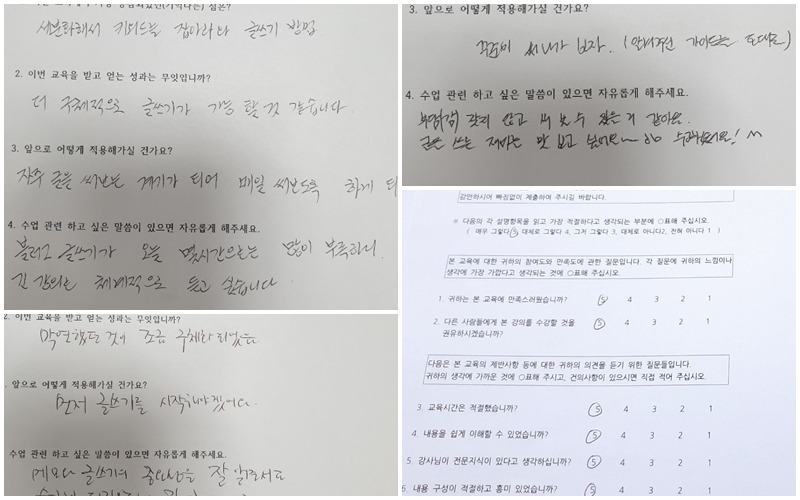 세분화해서 키워드를 잡아라와 글쓰기 방법
2. 이번 교육을 받고 얻는 성과는 무엇입니까?
더 구체적으로 글쓰기가 가능 할 것 같습니다.
3. 앞으로 어떻게 적용해가실 건가요?
자주 글을 써보는 계기가 되어 매일 써보도록 하게 되
4. 수업 관련 하고 싶은 말씀이 있으면 자유롭게 해주세요.
블러그 글쓰기가 오늘 몇시간으로는 많이 부족하니
긴 강의로 체계적으로 듣고 싶습니다
2. 이번 교육을 받고 얻는 성과는 무엇입니까?
막연했던 것이 조금 구체화 되었음
앞으로 어떻게 적용해가실 건가요?
먼저 글쓰기를 시작해야겠어요.
수업 관련 하고 싶은 말씀이 있으면 자유롭게 해주세요.
글쓰기의 중요성을 잘 알려주셔서
3. 앞으로 어떻게 적용해가실 건가요?
꾸준히 써 나가 보자.
4. 수업 관련 하고 싶은 말씀이 있으면 자유롭게 해주세요.
부담감 갖지 않고 써 볼 수 있을 거 같아요.
글을 쓰는 재미를 맛 보고 싶어요~
감안하시어 빠짐없이 제출하여 주시길 바랍니다.
※ 다음의 각 설명항목을 읽고 가장 적절하다고 생각되는 부분에 ○표해 주십시오.
( 매우 그렇다 5, 대체로 그렇다 4, 그저 그렇다 3, 대체로 아니다2, 전혀 아니다 1 )
본 교육에 대한 귀하의 참여도와 만족도에 관한 질문입니다. 각 질문에 귀하의 느낌이나
생각에 가장 가깝다고 생각되는 것에 ○표해 주십시오.
1. 귀하는 본 교육에 만족스러웠습니까? 5 4 3 2 1
2. 다른 사람들에게 본 강의를 수강할 것을 5 4 3 2 1
권유하시겠습니까?
다음은 본 교육의 제반사항 등에 대한 귀하의 의견을 듣기 위한 질문들입니다.
귀하의 생각에 가까운 것에 ○표해 주시고, 건의사항이 있으시면 직접 적어 주십시오.
3. 교육시간은 적절했습니까? 5 4 3 2 1
4. 내용을 쉽게 이해할 수 있었습니까? 5 4 3 2 1
5. 강사님이 전문지식이 있다고 생각하십니까? 5 4 3 2 1
6. 내용 구성이 적절하고 흥미 있었습니까? 5 4 3 2 1